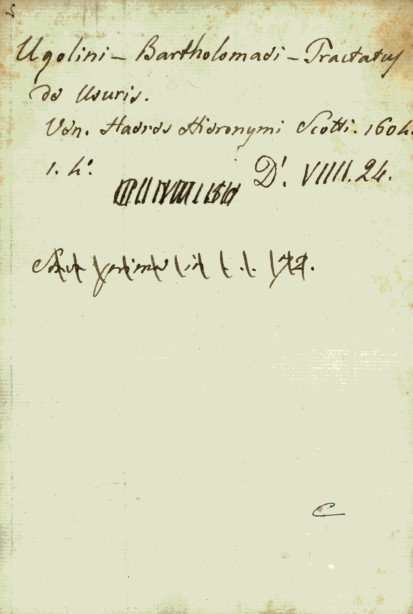 Ugolini - Bartholomaei - Tractatus
de Usuris.
Ven. Haeres Hieronymi Scotti. 1604.
1. 4.º D'. VIIII. 24.
C